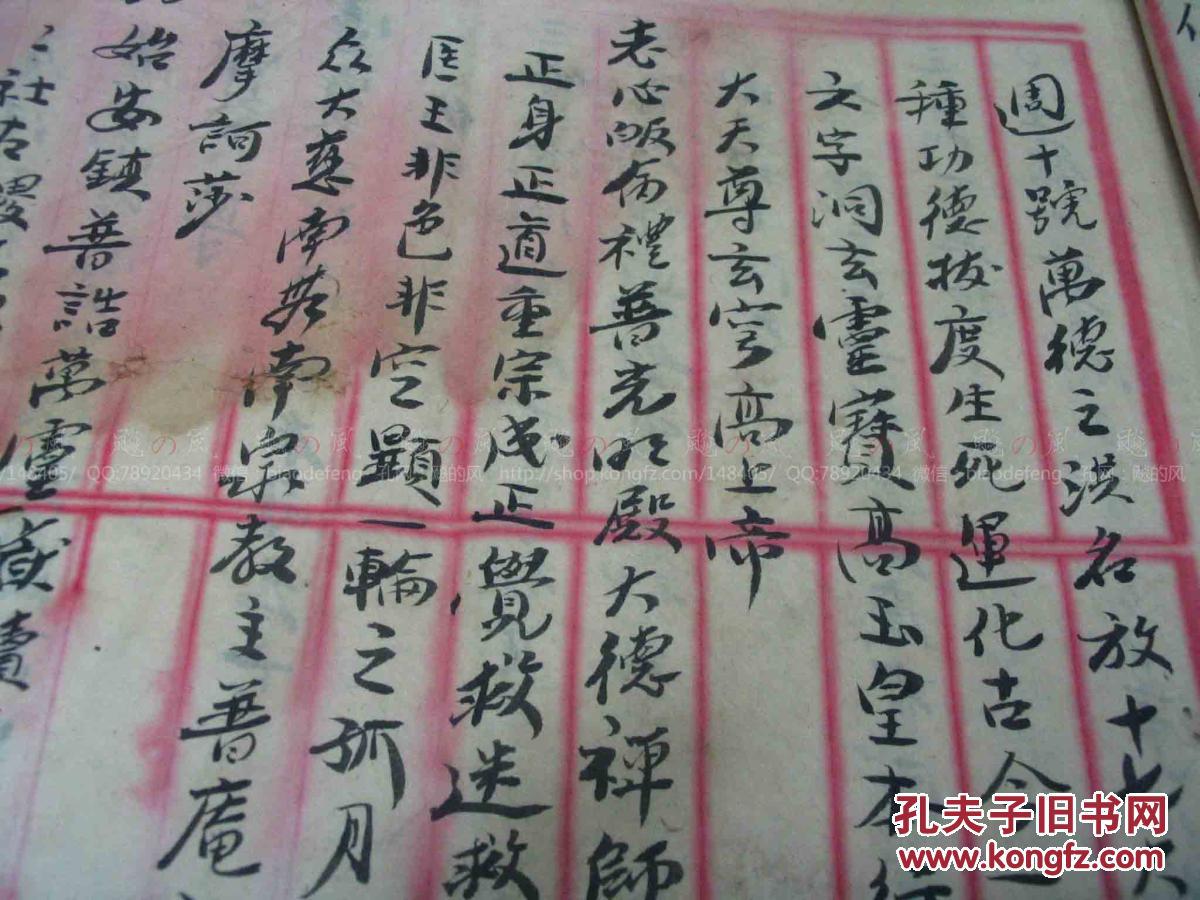 週十號萬德之洪名放十七大
種功德拔度生死運化古今一
文字洞玄靈寶高玉皇本行
大天尊玄穹高上帝
志心皈命禮普光明殿大德禪師
正身正道重宗成正覺救迷救
医王非色非空顯一輪之孤月
众大慈南無南泉教主普庵
摩訶薩
始安鎮普誥萬靈嶽瀆
孔夫子旧书网
www.kongfz.com